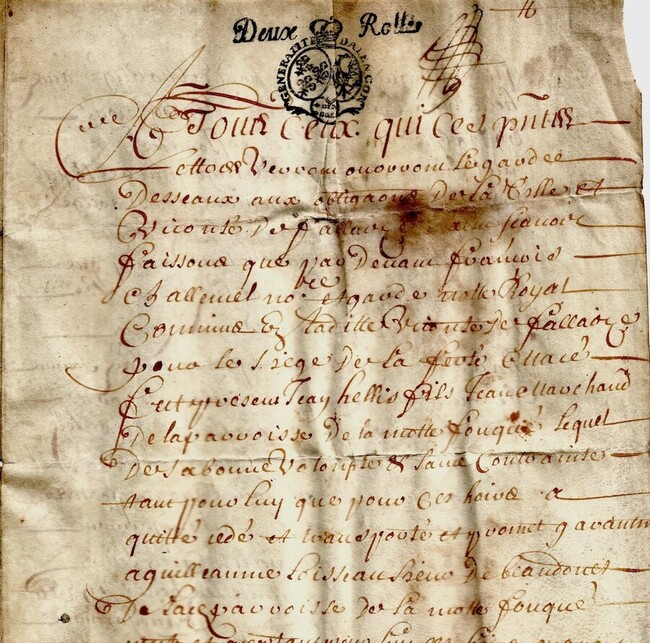 Deux Rolles
GENERALITE DALENCON
A Tous Ceux qui ces pntes
Lettres Verront ou orront Le garde
Des seaux aux obligaons De La Ville et
Viconté De fallaize Salut scavoir
faisons que par Devant françois
Challemel nore et garde notte Royal
Commis En Ladille Viconté De fallaize
pour le siege De La ferté Macé
fut present Jean hellis fils Jean Marchand
De la parroisse De la motte fouqué lequel
De sa bonne Volonpté & sans Contrainte
tant pour luy que pour ces hoirs a
quitté cedé et transporté et promet garantir
a guilleaume Loisseau sieur De
De lad parroisse De la motte fouqué